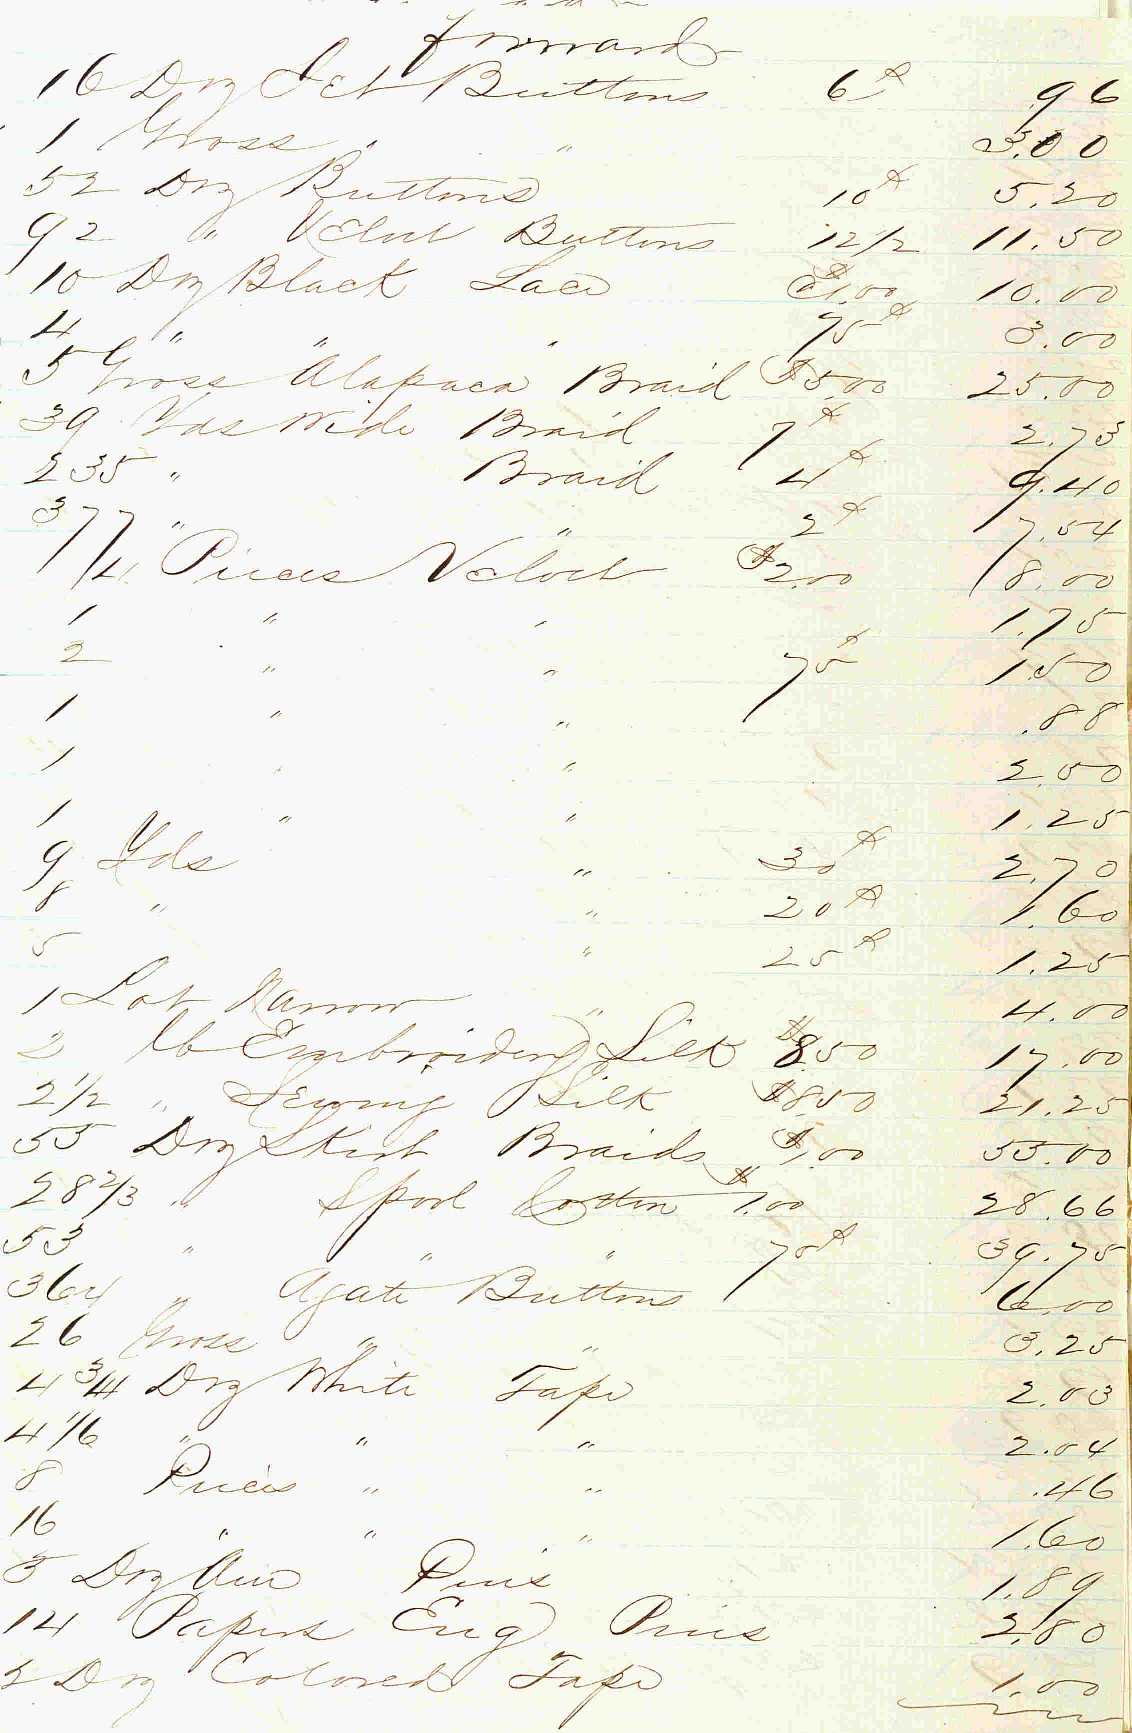 forward
16 Doz Jet Buttons 6¢ .96
1 Gross " " 3.00
52 Doz Buttons 10¢ 5.20
92 " Velvet Buttons 12 1/2 11.50
10 Doz Black Lace $1.00 10.00
4 " " " 75¢ 3.00
5 Gross Alapaca Braid $5.00 25.00
39 Yds Wide Braid 7¢ 2.73
235 " Braid 4¢ 9.40
377 " " 2¢ 7.54
4 Pieces Velvet $2.00 8.00
1 " " 1.75
2 " " 75¢ 1.50
1 " " .88
1 " " 2.50
1 " " 1.25
9 Yds " 30¢ 2.70
8 " " 20¢ 1.60
5 " 25¢ 1.25
1 Lot Narrow " 4.00
2 lb Embroidery Silk $8.50 17.00
2 1/2 " Sewing Silk $8.50 21.25
55 Doz Skirt Braids $1.00 55.00
28 2/3 " Spool Cotton $1.00 28.66
53 " " " 75¢ 39.75
364 " Agate Buttons 6.00
26 Gross " " 3.25
4 3/4 Doz White Tape 2.03
4 1/6 " " " 2.04
8 Pieces " " .46
16 " " " 1.60
Doz Pins 1.89
14 Papers Eng Pins 2.80
2 Doz Colored Tape 1.00